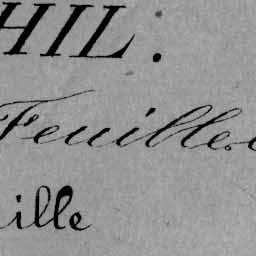 HIL.
Feuille
ille